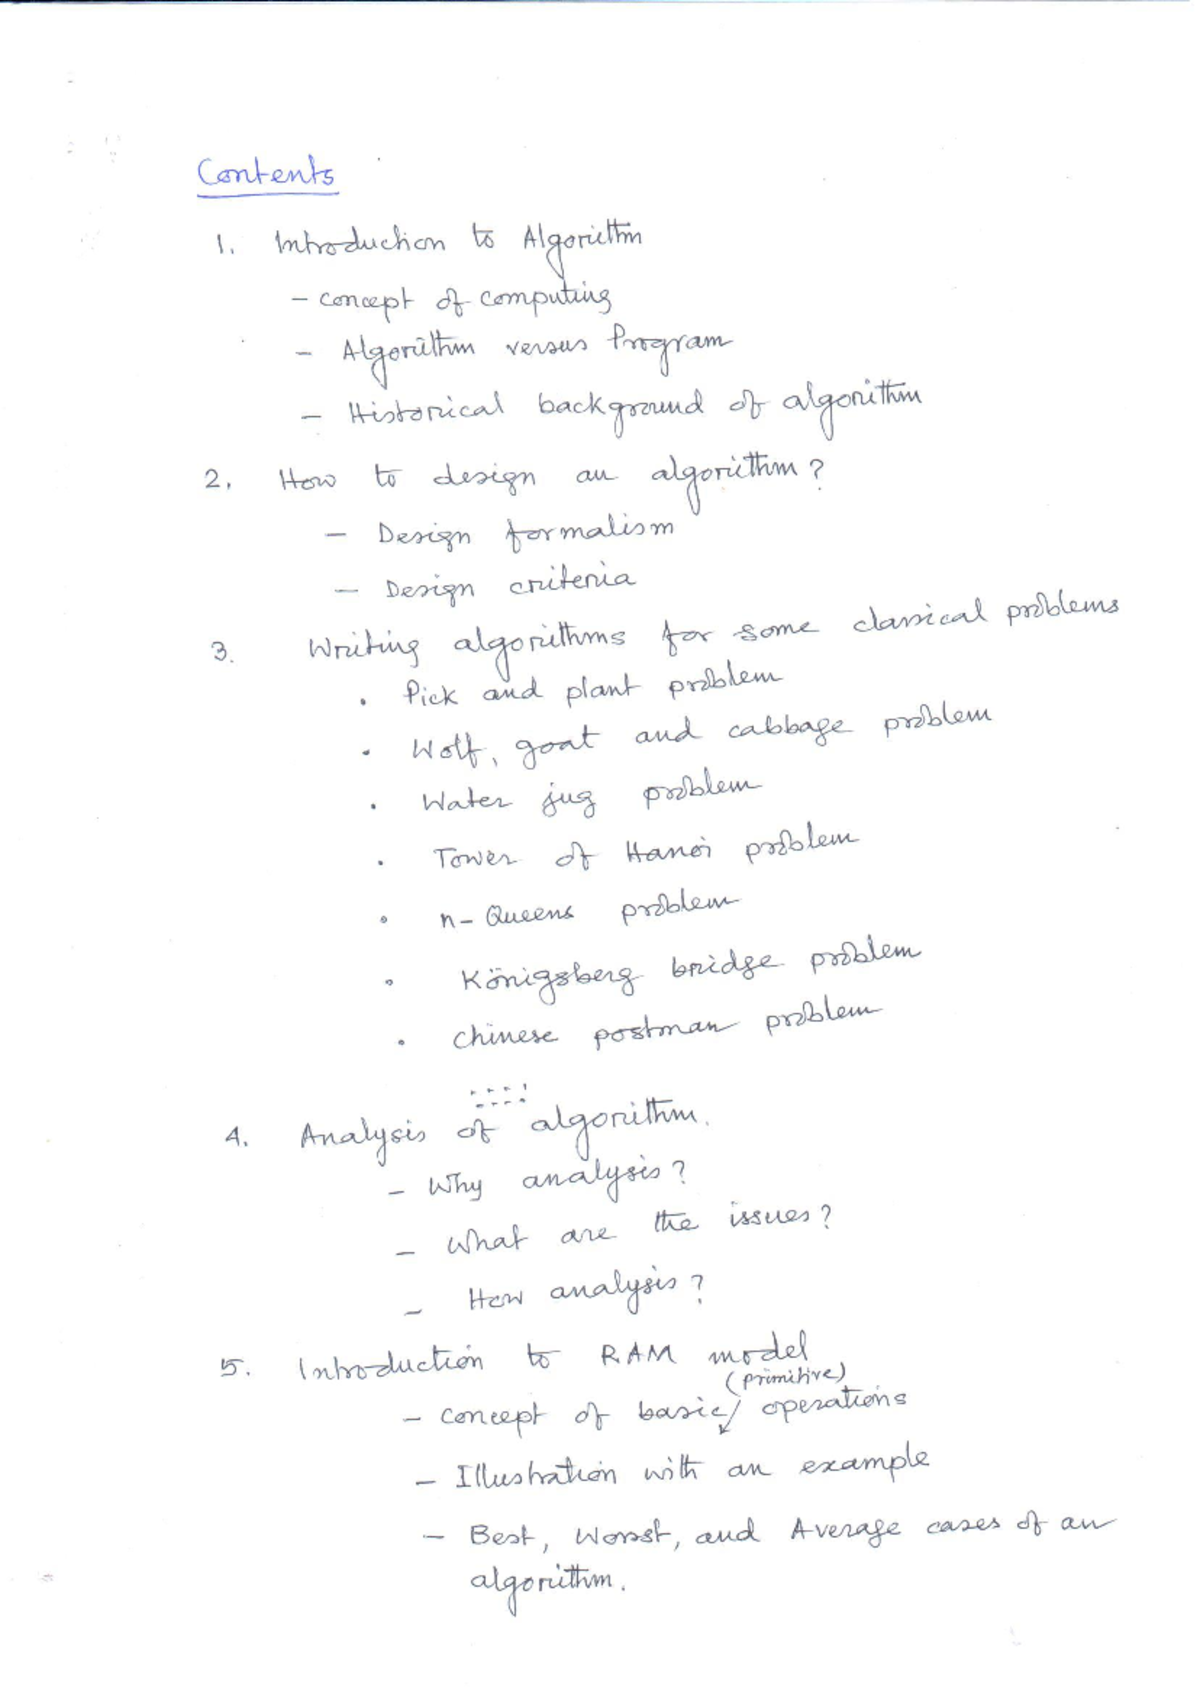 Contents
1. Introduction to Algorithm
- concept of computing
- Algorithm versus Program
- Historical background of algorithm
2. How to design an algorithm?
- Design formalism
- Design criteria
3. Writing algorithms for some classical problems
• Pick and plant problem
• Wolf, goat and cabbage problem
• Water jug problem
• Tower of Hanoi problem
• n-Queens problem
• Königsberg bridge problem
• Chinese postman problem
4. Analysis of algorithm.
- Why analysis?
- What are the issues?
- How analysis?
5. Introduction to RAM model
(primitive)
- concept of basic/ operations
- Illustration with an example
- Best, Worst, and Average cases of an
algorithm.